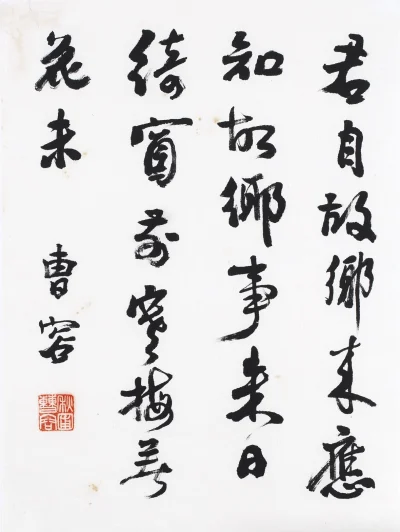 君自故鄉来應
知故鄉事来日
綺窗前寒梅著
花未
曹容
秋圃
曹容